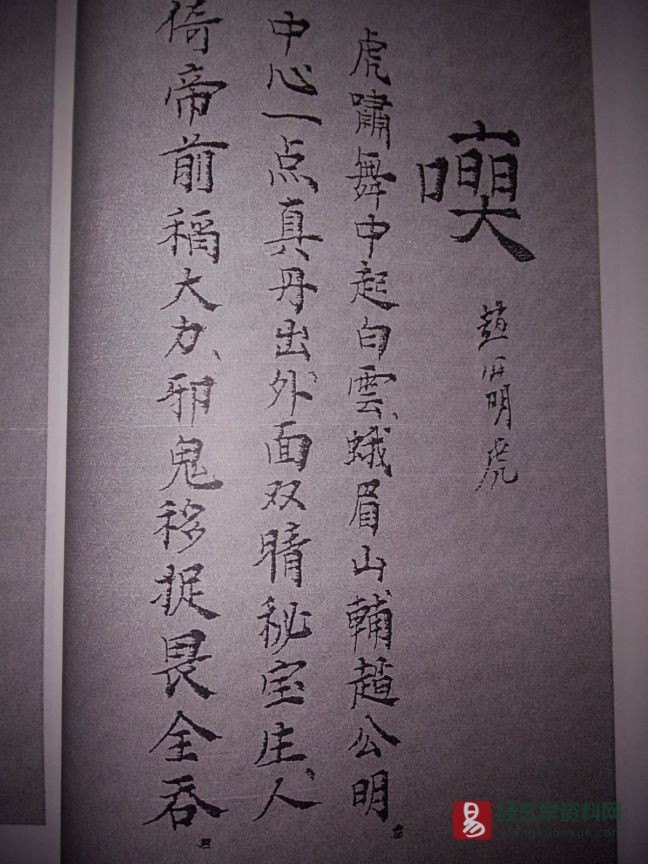 趙公明虎
虎嘯舞中起白雲、蛾眉山輔趙公明。
中心一点真丹出外面双睛秘宝庄、人
倚帝前稱大力、邪鬼移捉畏全吞。
易